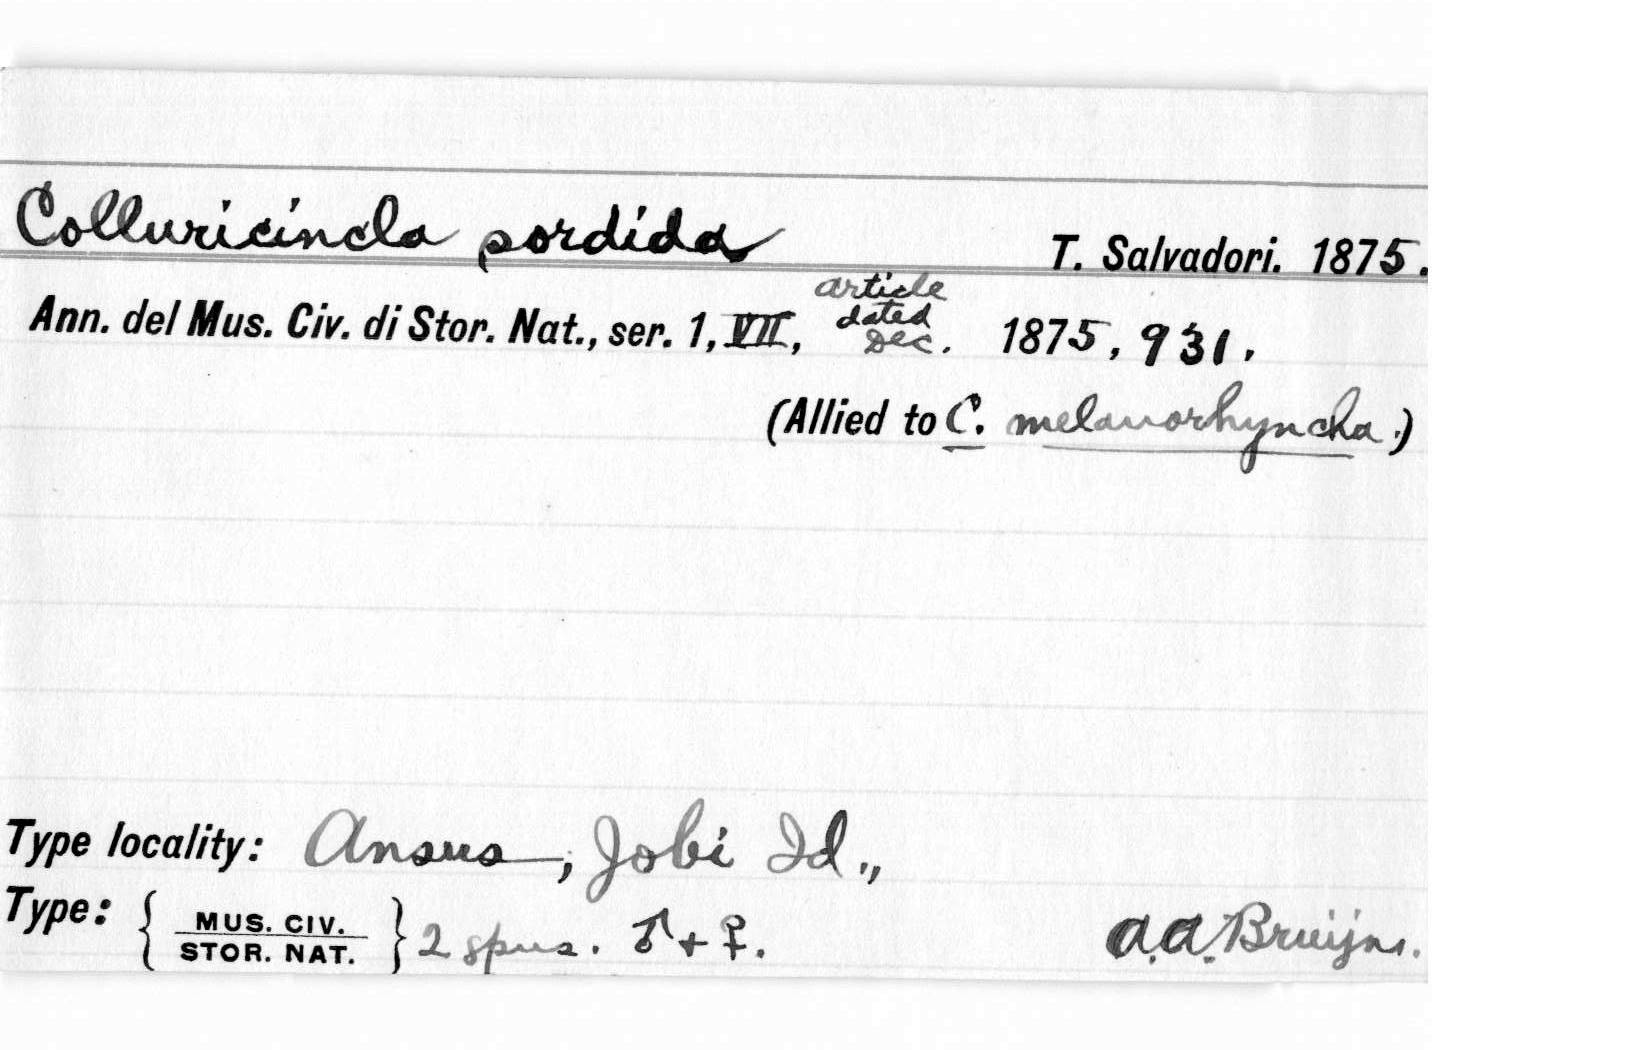 Colluricincla sordida T. Salvadori. 1875.
Ann. del Mus. Civ. di Stor. Nat., ser. 1, VII, article dated Dec. 1875, 931.
(Allied to C. melanorhyncha.)
Type locality: Ansus, Jobi Id.,
Type: { MUS. CIV. STOR. NAT. } 2 spms. ♂ + ♀. A.A. Bruijns.